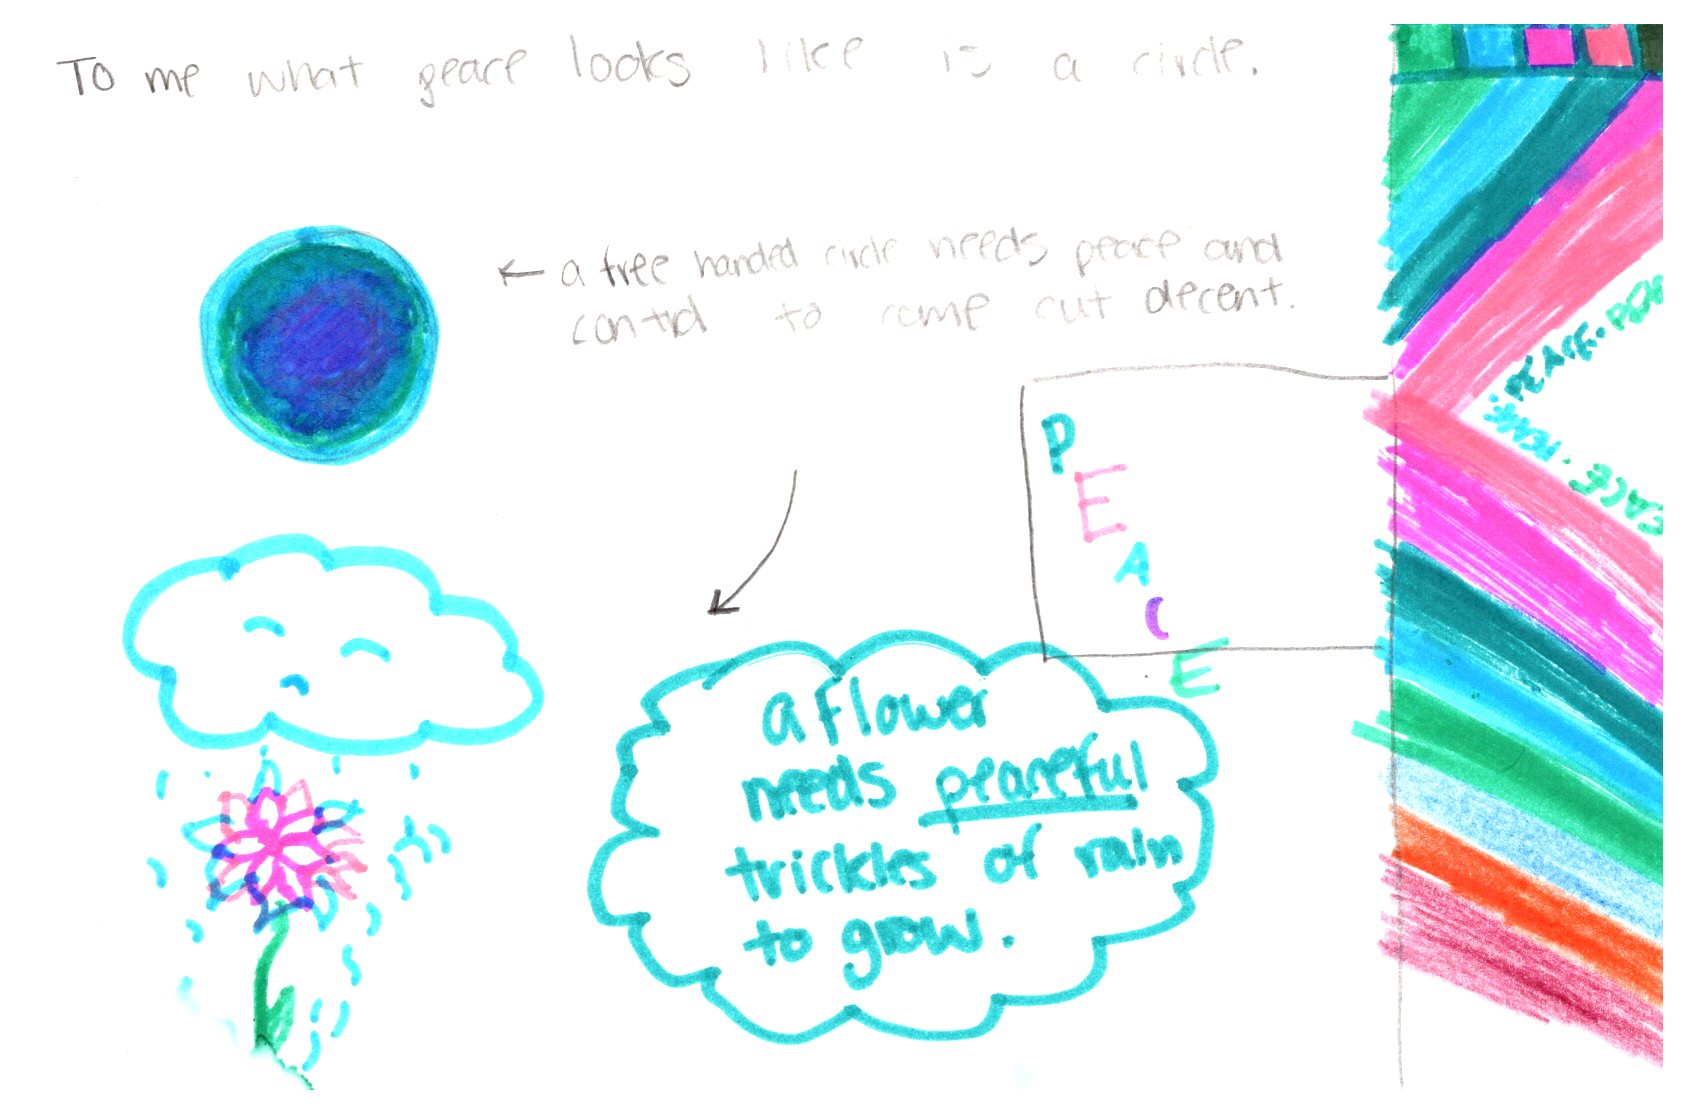 To me what peace looks like is a circle.
← a free handed circle needs peace and
control to come out decent.
P
E
A
C
E
a flower
needs peaceful
trickles of rain
to grow.
PEACE. PEA
PEACE.
EACE